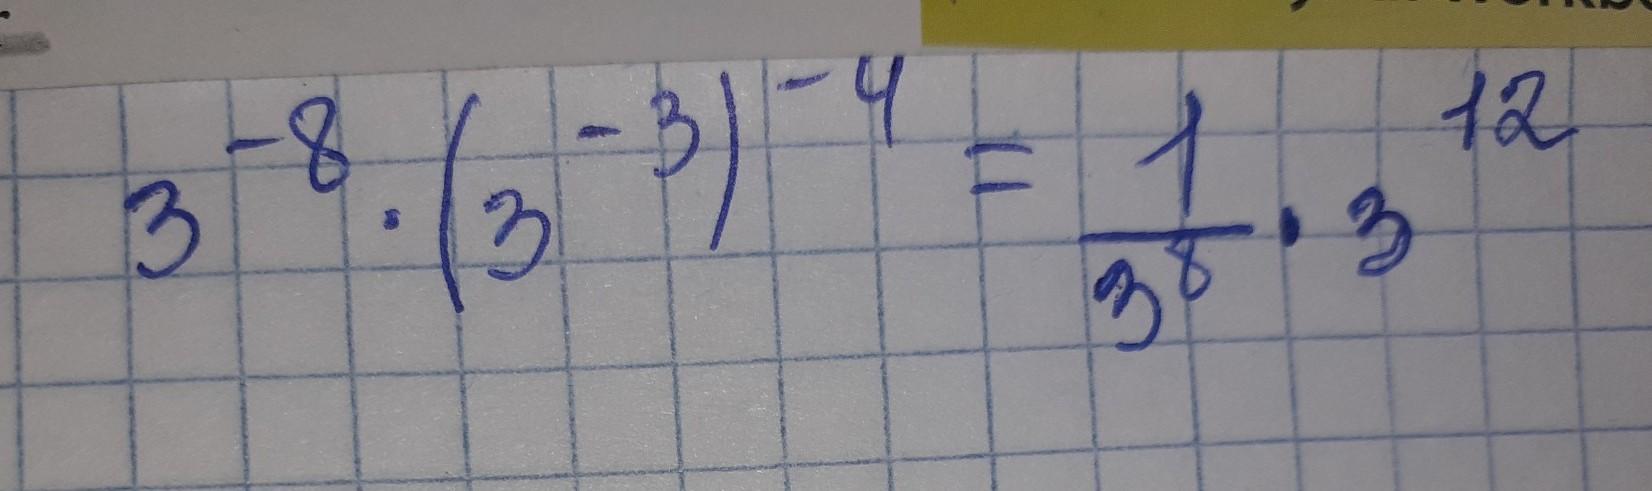 3^{-8} · (3^{-3})^{-4} = \frac{1}{3^8} · 3^{12}